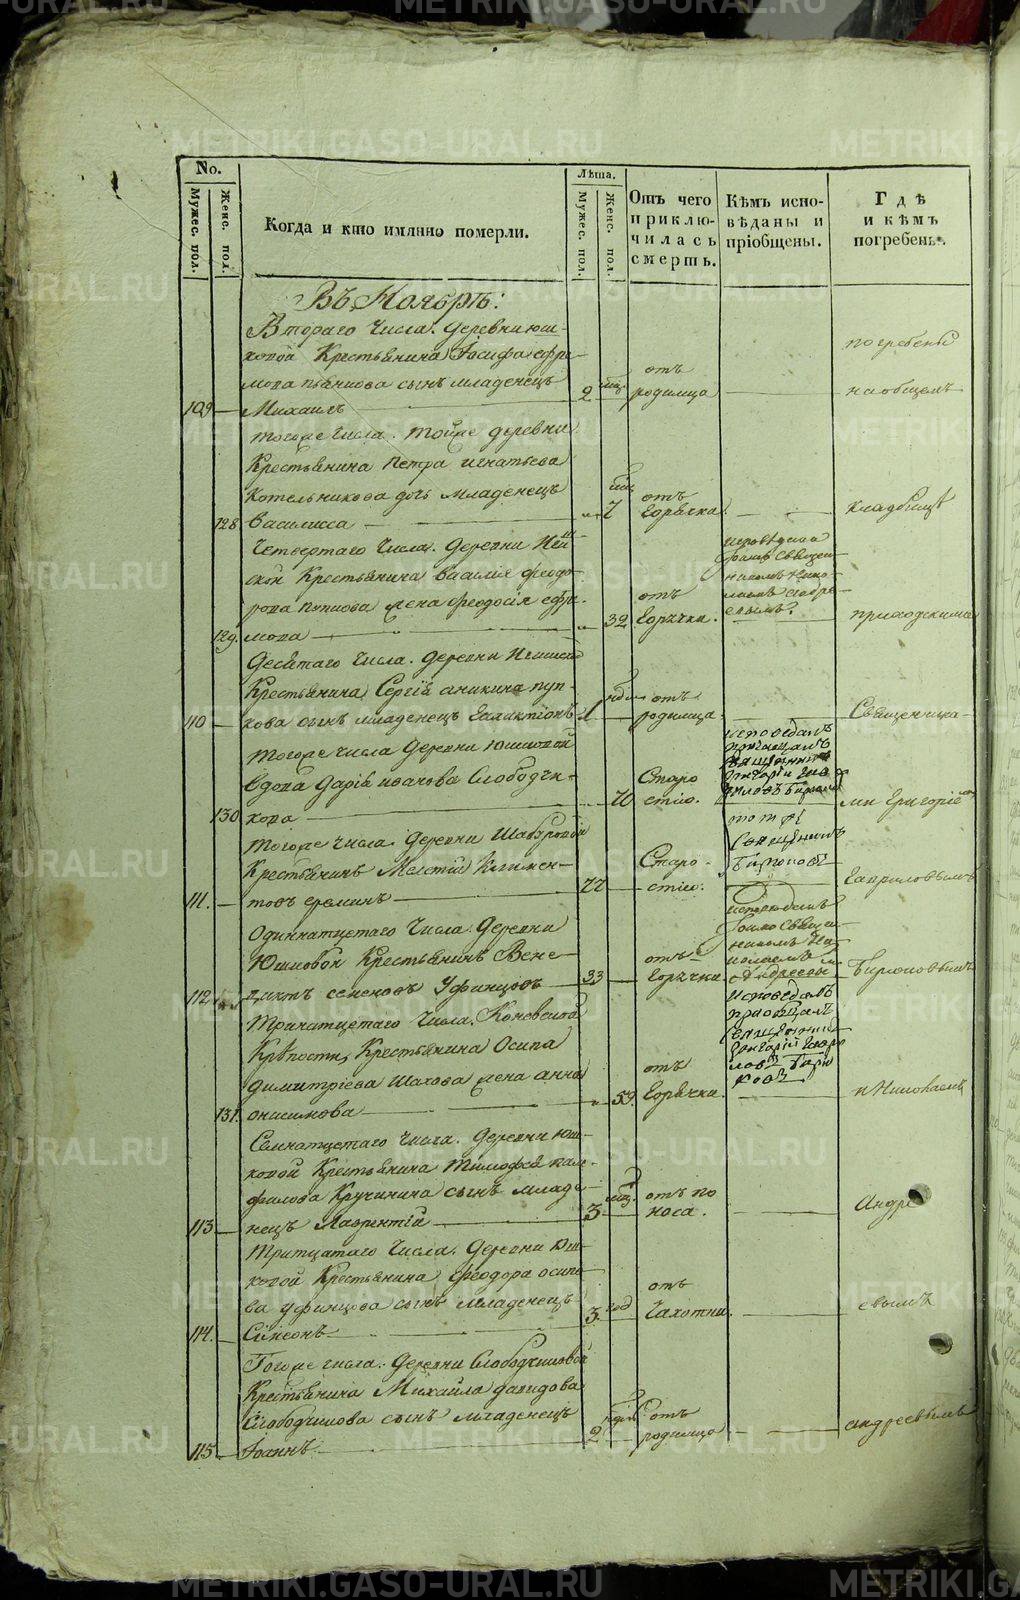 No.
Мужес. пол.
Женс. пол.
Когда и кто имянно померли.
Лѣта.
Мужес. пол.
Женс. пол.
Отъ чего
приклю-
чилась
смерть.
Кѣмъ испо-
вѣданы и
пріобщены.
Гдѣ
и кѣмъ
погребены.
Въ Ноябрѣ:
Втораго числа. Деревни Юш-
ковой Крестьянина Іосифа Ефре-
мова Пьянкова сынъ младенецъ
109 Михаилъ
2 мѣс.
отъ
родимца
погребены
на общемъ
Тогоже числа. Тойже деревни
Крестьянина Петра Игнатьева
Котельникова дочь младенецъ
128 Василисса
7
отъ
Горячки.
кладбищѣ
Четвертаго числа. Деревни
Крестьянина Василія Феодо-
рова Пупкова жена Феодосія Ефре-
129. мова
32
отъ
Горячки.
приходскими
Десятаго числа. Деревни
Крестьянина Сергія Аникина Пуп-
110 кова сынъ младенецъ Галактіонъ
1 нед
отъ
родимца
Священника-
Тогоже числа Деревни Юшковой
Вдова Дарія Иванова Слободчи-
130 кова
70
Старо
стію.
исповедалъ
приобщалъ
священникъ
Григорій Гав
риловъ Бирюков
ми Григоріемъ
Тогоже числа. Деревни Шабуровой
Крестьянинъ Климен-
111. товъ Ереминъ
77
Старо-
стію.
тотже
священникъ
Бирюковъ
Гавриловымъ
Одиннатцетаго числа. Деревни
Юшковой Крестьянинъ Вене-
112 диктъ Семеновъ Уфинцовъ
33
отъ
Горячки
Бирюковымъ
Тринатцетаго числа. Коневской
Крѣпости, Крестьянина Осипа
Димитріева Шахова жена Анна
131. Онисимова
59.
отъ
Горячки.
исповедалъ
приобщалъ
священникъ
Григорій Гаври
ловъ Бирю
ковъ
и Николаемъ
Семнатцетаго числа. Деревни Юш-
ковой Крестьянина Тимофея Пам-
филова Кручинина сынъ младе-
113 нецъ Лаврентій
3 мѣс.
отъ по
носа.
Андре
Тритцатаго числа. Деревни Юш-
ковой Крестьянина Феодора Осипо-
ва Уфинцова сынъ младенецъ
114. Сімеонъ
3. год
отъ
Чахотки.
евымъ
Тогоже числа. Деревни Слободчиковой
Крестьянина Михайла Давидова
Слободчикова сынъ младенецъ
115 Іоаннъ
2 недѣл
отъ
родимца
Андреевымъ
METRIKI.GASO-URAL.RU